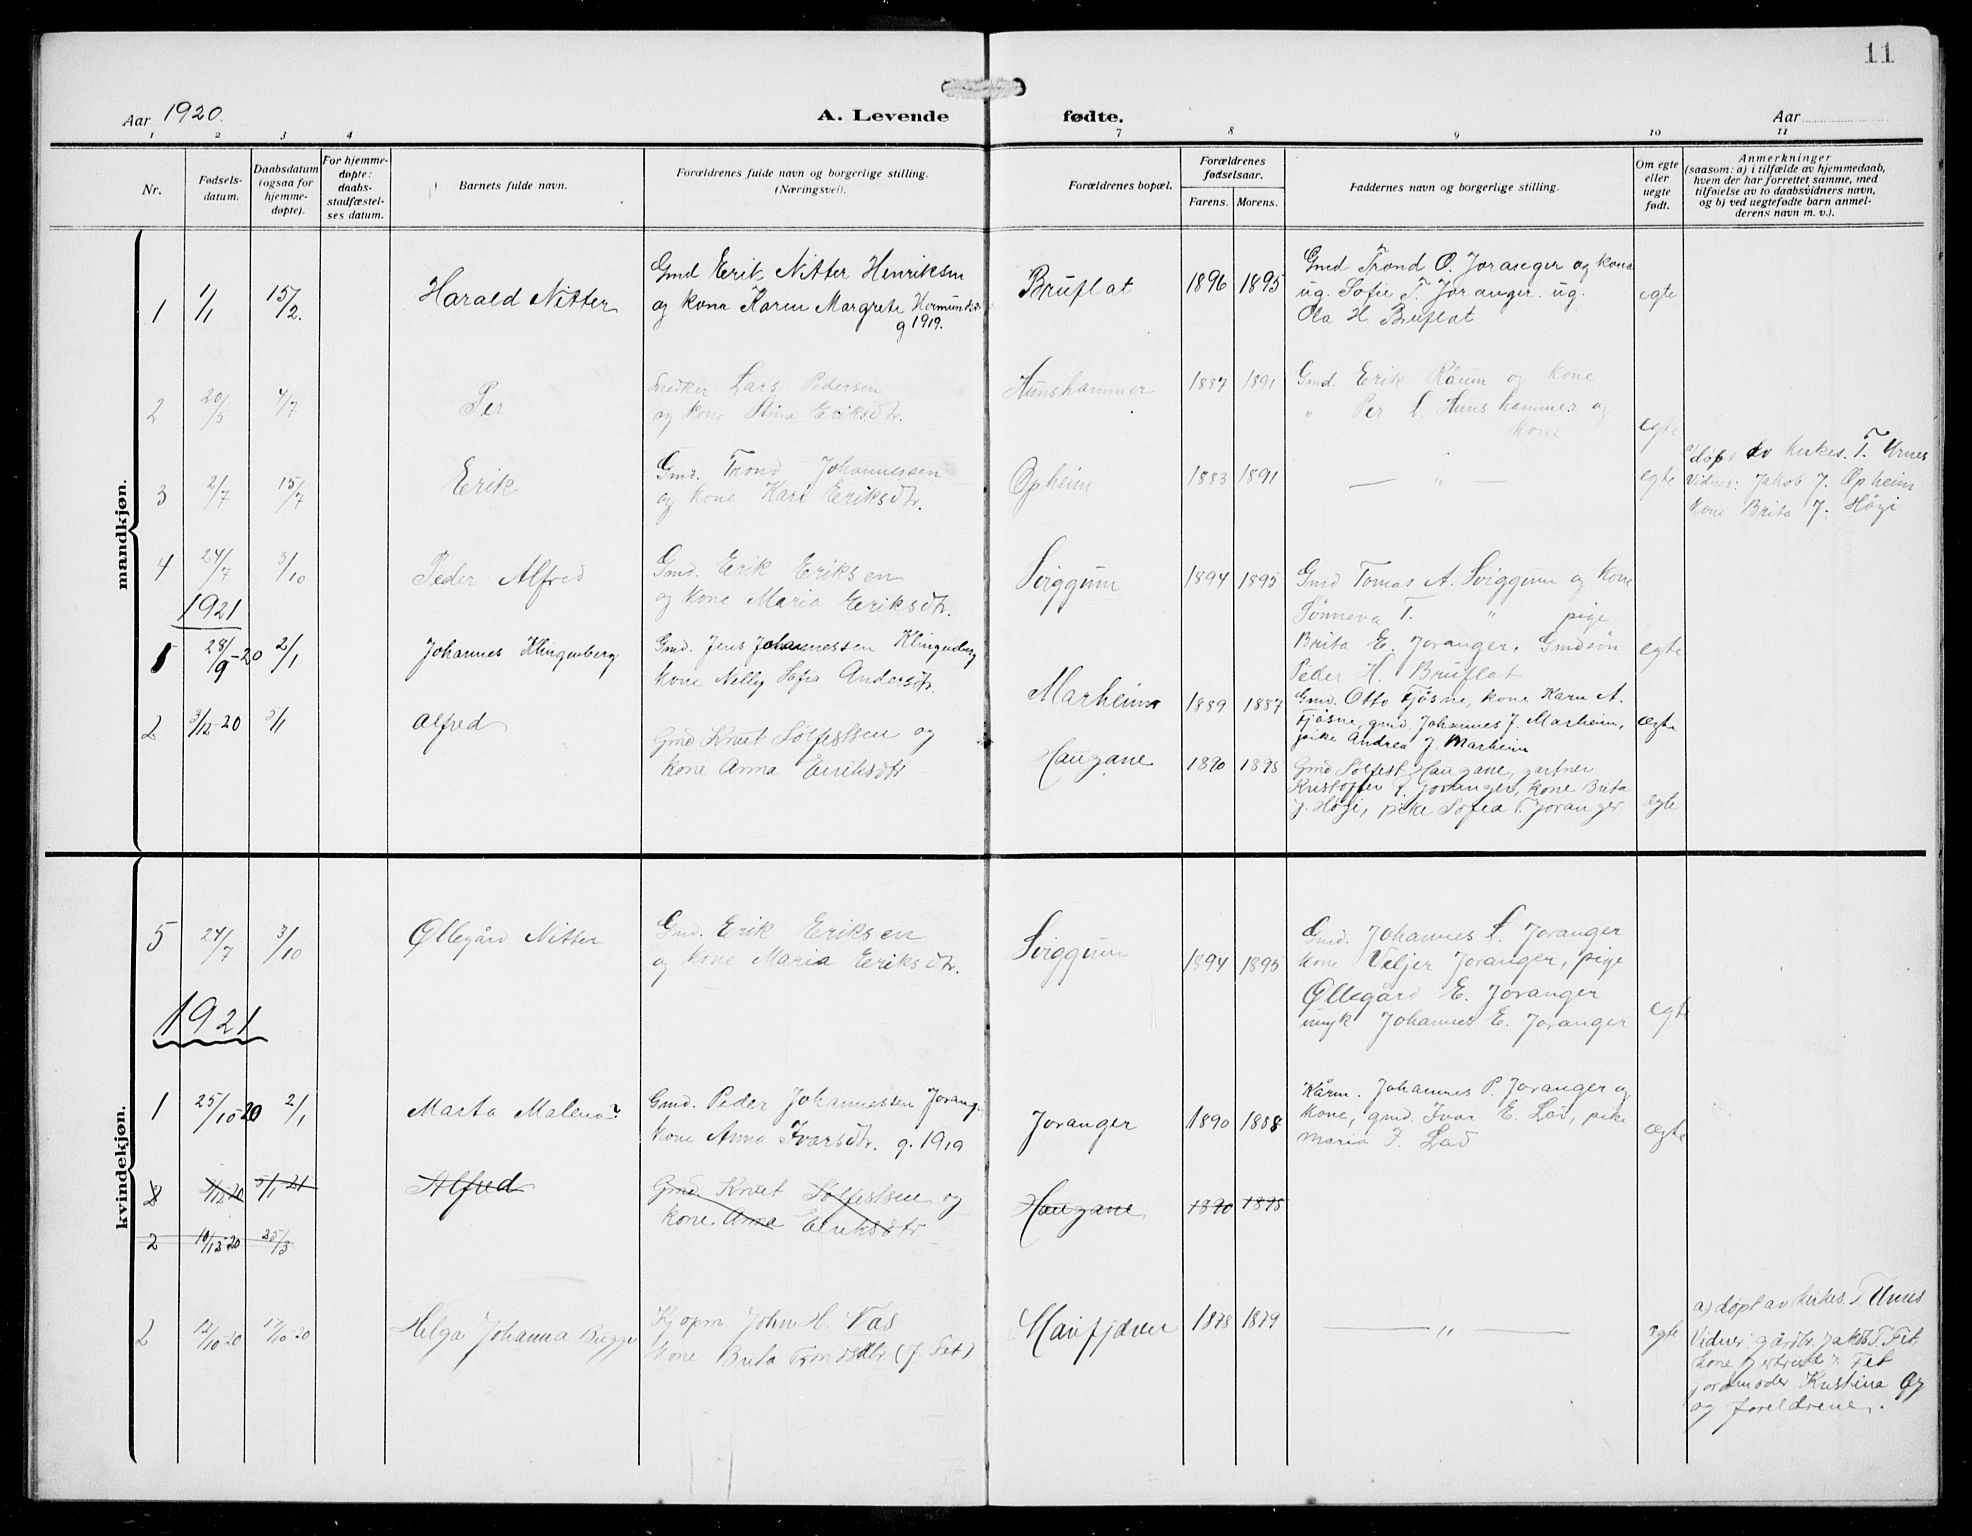 11
Aar 1920
A. Levende fødte.
Aar
1 2 3 4 7 8 9 10 11
Nr.
Fødsels-
datum.
Daabsdatum
(ogsaa for
hjemme-
døpte).
For hjemme-
døpte:
daabs-
stadfæstel-
ses datum.
Barnets fulde navn.
Forældrenes fulde navn og borgerlige stilling.
(Næringsvei).
Forældrenes bopæl.
Forældrenes
fødselsaar.
Farens. Morens.
Faddernes navn og borgerlige stilling.
Om egte
eller
uegte
født.
Anmerkninger
(saasom: a) i tilfælde av hjemmedaab,
hvem der har forrettet samme, med
tilføielse av to daabsvidners navn,
og b) ved uegtefødte barn anmel-
derens navn m. v.).
mandkjøn.
1 1/1 15/2. Harald Nitter
Gmd Erik Nitter Henriksen
og kona Karen Margrete Hermundsdr
g 1919.
Bruflat 1896 1895
Gmd Trond O. Joranger og kona
ug. Sofie T. Joranger. ug.
Ola H. Bruflat
egte
2 20/5 4/7 Per
Snedker Lars Pedersen
og kone Stina Eriksdtr.
Hunshammer 1887 1891
Gmd. Erik Råum og kone
" Per L. Hunshammer og
kone
egte
3 2/7 15/7 Erik
Gmd. Trond Johannessen
og kone Kari Eriksdtr.
Opheim 1883 1891
— " —
egte
døpt av kirkes. T. Urnes
Vidner: Jakob J. Opheim
kone Brita J. Høgi
4 24/7 3/10 Peder Alfred
Gmd. Erik Eriksen
og kone Maria Eriksdtr.
Sviggum 1894 1895
Gmd Tomas A. Sviggum og kone
Sönneva T. " pige
Brita E. Joranger, Gmdsøn
Peder H. Bruflat
egte
1921
28/9-20 2/1 Johannes Klingenberg
Gmd. Jens Johannessen Klingenberg
kone Nelly Sofia Andersdtr.
Marheim 1889 1887
Gmd. Otto Fjøsne, kone Karn A.
Fjøsne, gmd. Johannes J. Marheim,
pike Andrea J. Marheim
Ægte
2 3/12-20 2/1 Alfred
Gmd Knut Sølfestsen og
kone Anna Eriksdtr
Haugane 1890 1895
Gmd Sølfest Haugane, gartner
Kristoffer P. Joranger, kone Brita
J. Høgi, pike Sofia T. Joranger
Ægte
kvindekjøn.
5 24/7 3/10 Øllegård Nitter
Gmd. Erik Eriksen
og kone Maria Eriksdtr.
Sviggum 1894 1895
Gmd. Johannes L. Joranger
kone Veljer Joranger, pige
Øllegård E. Joranger
ungk Johannes E. Joranger
egte
1921
1 25/10-20 2/1 Marta Malena
Gmd. Peder Johannessen Joranger
kone Anna Ivarsdtr. g. 1919
Joranger 1890 1888
Kårm. Johannes P. Joranger og
kone, gmd. Ivar E. Lad, pike
Maria I. Lad
Ægte
2 3/12 20 2/1 21 Alfred
Gmd. Knut Sølfestsen og
kone Anna Eriksdtr
Haugane 1890 1895
2 10/12-20 25/3
2 12/10-20 17/10-20 Helga Johanna Bugge
Kjøpm John H. Næs
kone Brita Trondsdtr. (f. Fet)
Høyfjøren 1878 1879
— " —
egte
a) døpt av kirkes. T Urnes
Vidner: gårdbr. Jakob T. Fet,
kone Jertrud Fet
jordmoder Kristina
og foreldrene.